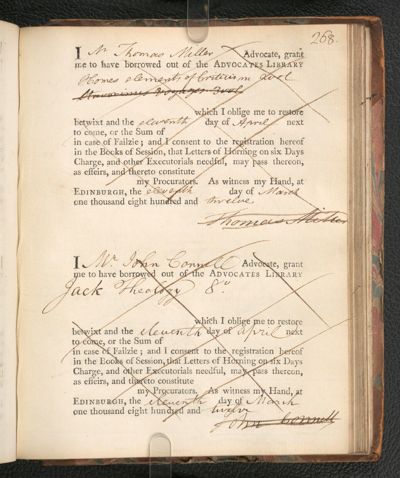 268.
I Mr. Thomas Miller Advocate, grant
me to have borrowed out of the ADVOCATES LIBRARY
Homes elements of Criticism 2vol
Voyages 2vols
which I oblige me to restore
betwixt and the eleventh day of April next
to come, or the Sum of
in case of Failzie; and I consent to the registration hereof
in the Books of Session, that Letters of Horning on six Days
Charge, and other Executorials needful, may pass thereon,
as effeirs, and thereto constitute
my Procurators. As witness my Hand, at
EDINBURGH, the eleventh day of March
one thousand eight hundred and twelve.
Thomas Miller
I Mr. John Connell Advocate, grant
me to have borrowed out of the ADVOCATES LIBRARY
Jack Theology 8vo
which I oblige me to restore
betwixt and the eleventh day of April next
to come, or the Sum of
in case of Failzie; and I consent to the registration hereof
in the Books of Session, that Letters of Horning on six Days
Charge, and other Executorials needful, may pass thereon,
as effeirs, and thereto constitute
my Procurators. As witness my Hand, at
EDINBURGH, the eleventh day of March
one thousand eight hundred and twelve
John Connell